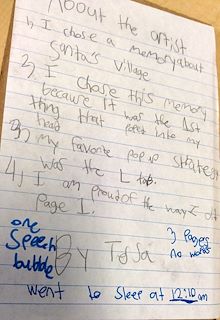 About the artist
1) I chose a memory about
Santa's Village
2) I chose this memory
because it was the 1st
thing that poped into my
head
3) my favorite pop up strategy
was the L tab.
4) I am proud of the way I did
page 1.
one
speech
bubble
By Tessa
3 pages
no words
went to sleep at 12:10 am